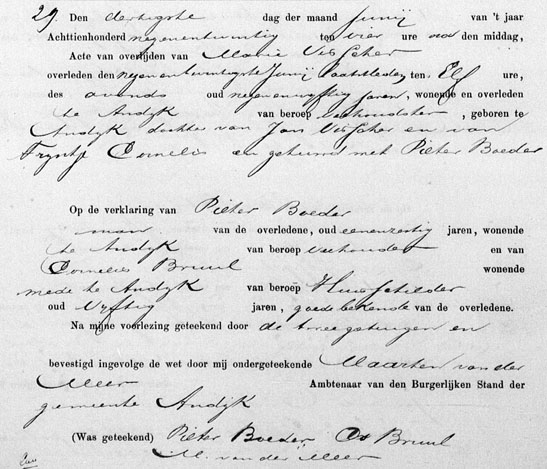 29. Den dertigste dag der maand Junij van 't jaar
Achttienhonderd negenentwintig ten vier ure na den middag,
Acte van overlijden van Marie Visscher
overleden den negenentwintigste Junij laatstleden ten Elf ure,
des avonds oud negenenvyftig jaren, wonende en overleden
te Andyk van beroep veehoudster, geboren te
Andyk dochter van Jan Visscher en van
Tryntje Cornelis en gehuwd met Pieter Boeder
Op de verklaring van Pieter Boeder
man van de overledene, oud eenenzestig jaren, wonende
te Andyk van beroep veehouder en van
Cornelis Bruul wonende
mede te Andyk van beroep Huisschilder
oud Vyftig jaren, goede bekende van de overledene.
Na mijne voorlezing geteekend door de twee getuigen en
bevestigd ingevolge de wet door mij ondergeteekende Maarten van der
Meer Ambtenaar van den Burgerlijken Stand der
gemeente Andyk
(Was geteekend) Pieter Boeder, Cs Bruul
M. van der Meer